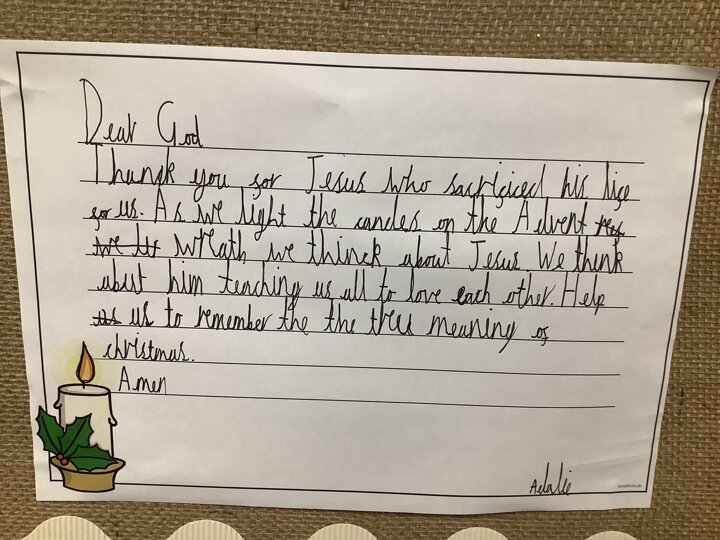 Dear God
Thank you for Jesus who sacrificed his life
for us. As we light the candes on the Advent
wreath we thinck about Jesus. We think
about him teaching us all to love each other. Help
us to remember the the true meaning of
christmas.
Amen
twinkl.co.uk